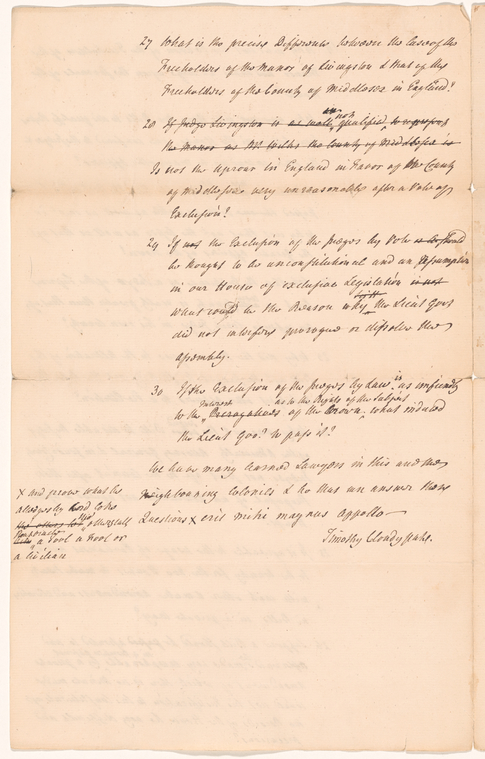 27 What is the precise Difference between the Case of the
Freeholders of the Manor of Livingston & that of the
Freeholders of the County of Middlesex in England?
28 If Judge Livingston is as well an not qualified to represent
the Manor as Mr Wilkes the County of Middlesex is
Is not the uproar in England in Favor of the County
of Middlesex very unreasonable after a Vote of
Exclusion?
29 If not the Exclusion of the Judges by Vote is should
be thought to be unconstitutional and an Assumption
in our House of exclusive Legislation is not
what could be the Reason why the Lieut Govr
did not interpose prorogue or dissolve the
assembly.
30 If the Exclusion of the Judges by Law is as unfriendly
to the Interest Prerogatives of the Crown as to the Rights of the Subject what induced
the Lieut Govr to pass it?
We have many learned Lawyers in this and the
Neighbouring Colonies & he that can answer these
Questions x erit mihi magnus appollo
Timothy Cloudy
x and prove what he
alledges by
a Fool a Fool or
a Civilian